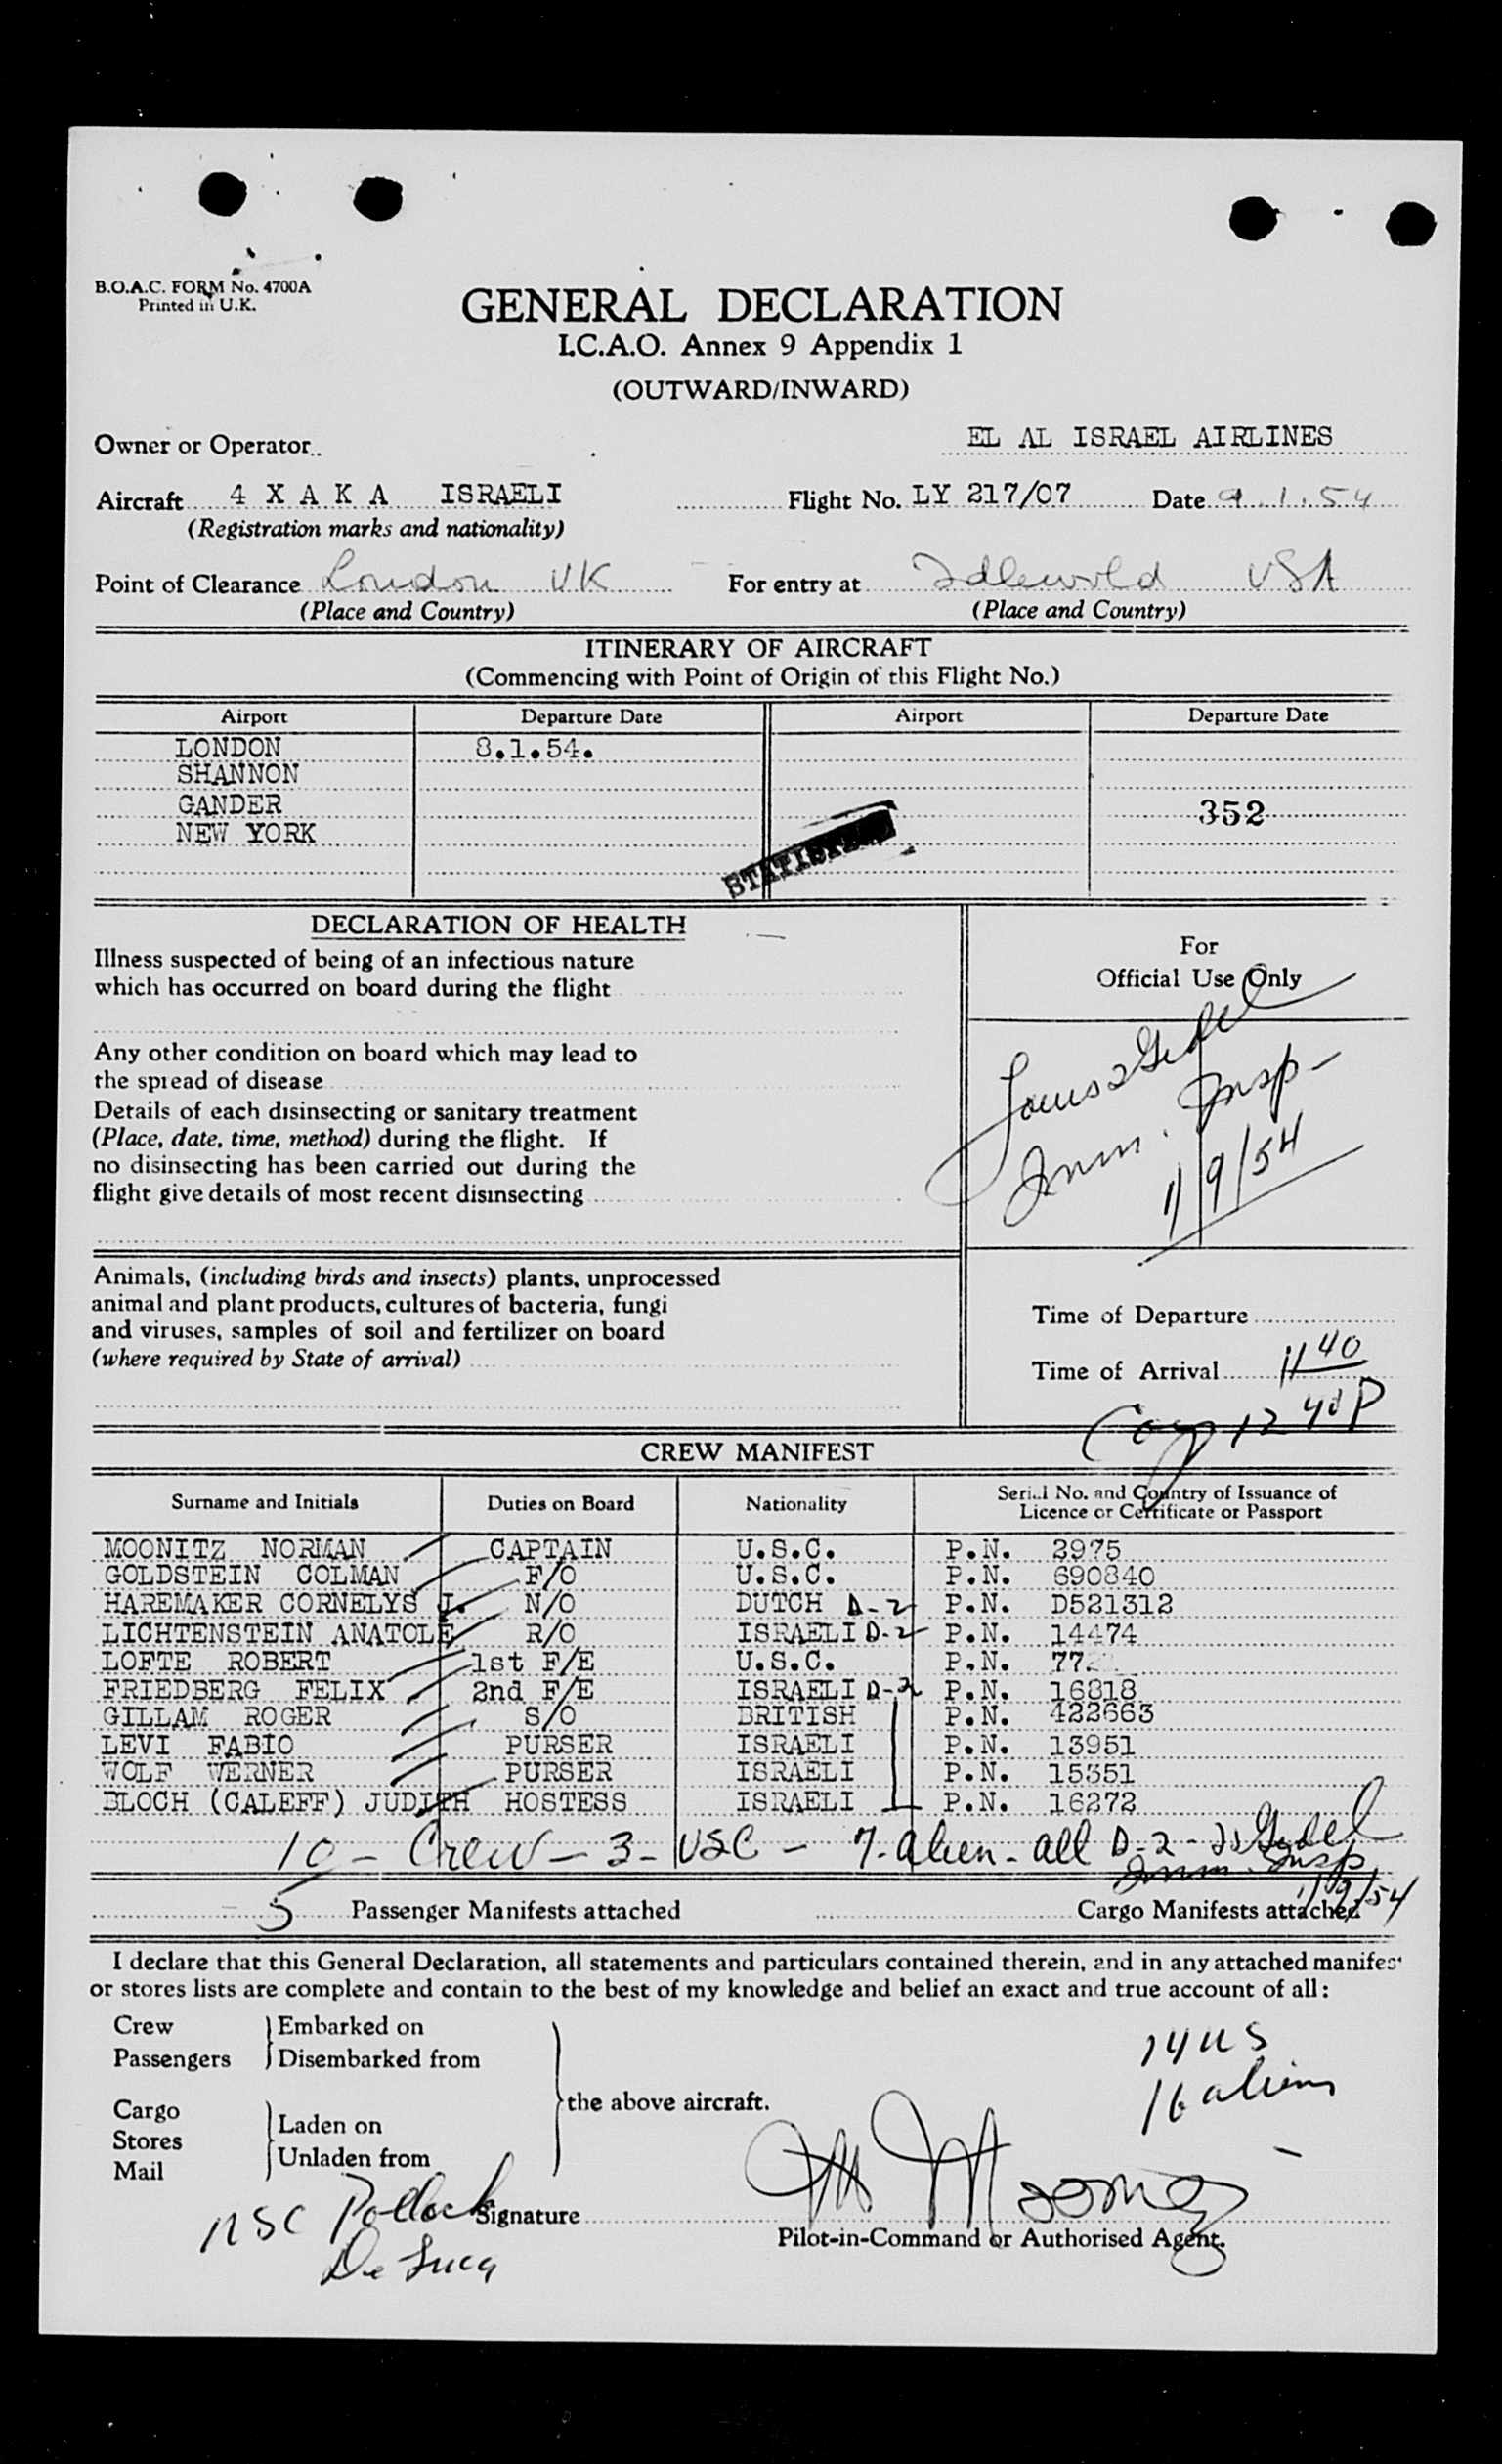 B.O.A.C. FORM No. 4700A
Printed in U.K.
GENERAL DECLARATION
I.C.A.O. Annex 9 Appendix 1
(OUTWARD/INWARD)
Owner or Operator EL AL ISRAEL AIRLINES
Aircraft 4 X A K A ISRAELI Flight No. LY 217/07 Date 9.1.54
(Registration marks and nationality)
Point of Clearance London UK For entry at Idlewild USA
(Place and Country) (Place and Country)
ITINERARY OF AIRCRAFT
(Commencing with Point of Origin of this Flight No.)
Airport Departure Date Airport Departure Date
LONDON 8.1.54.
SHANNON
GANDER 352
NEW YORK
DECLARATION OF HEALTH
Illness suspected of being of an infectious nature
which has occurred on board during the flight
Any other condition on board which may lead to
the spread of disease
Details of each disinsecting or sanitary treatment
(Place, date, time, method) during the flight. If
no disinsecting has been carried out during the
flight give details of most recent disinsecting
For
Official Use Only
Imm. Insp.
1/9/54
Animals, (including birds and insects) plants, unprocessed
animal and plant products, cultures of bacteria, fungi
and viruses, samples of soil and fertilizer on board
(where required by State of arrival)
Time of Departure
Time of Arrival 11 40
12 40 P
CREW MANIFEST
Surname and Initials Duties on Board Nationality Serial No. and Country of Issuance of
Licence or Certificate or Passport
MOONITZ NORMAN CAPTAIN U.S.C. P.N. 2975
GOLDSTEIN COLMAN F/O U.S.C. P.N. 690840
HAREMAKER CORNELYS J. N/O DUTCH D-2 P.N. D521312
LICHTENSTEIN ANATOLE R/O ISRAELI D-2 P.N. 14474
LOFTE ROBERT 1st F/E U.S.C. P.N.
FRIEDBERG FELIX 2nd F/E ISRAELI D-2 P.N. 16818
GILLAM ROGER S/O BRITISH P.N. 422663
LEVI FABIO PURSER ISRAELI P.N. 13951
WOLF WERNER PURSER ISRAELI P.N. 15351
BLOCH (CALEFF) JUDITH HOSTESS ISRAELI P.N. 16272
10 - Crew - 3 - USC - 7 - alien - all D-2
Imm. Insp
1/9/54
5 Passenger Manifests attached Cargo Manifests attached
I declare that this General Declaration, all statements and particulars contained therein, and in any attached manifest
or stores lists are complete and contain to the best of my knowledge and belief an exact and true account of all:
Crew Embarked on
Passengers Disembarked from
the above aircraft.
Cargo Laden on
Stores
Mail Unladen from
14 US
16 aliens
Pollock
De Luca
Signature
Pilot-in-Command or Authorised Agent.